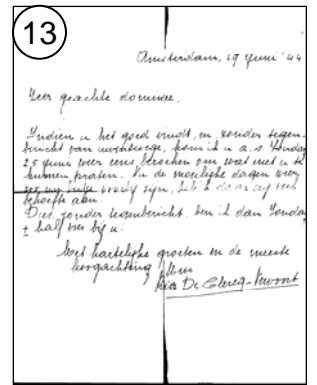 13
Amsterdam, 19 Juni '44
Zeer geachte dominee,
Indien u het goed vindt, en zonder tegen-
bericht van uwentwege, kom ik u a.s. Zondag
25 juni weer eens bezoeken om wat met u te
kunnen praten. In de moeilijke dagen
zijn, heb ik daar
behoefte aan.
Dus zonder tegenbericht ben ik dan Zondag
± half bij u.
Met hartelijke groeten en de meeste
hoogachting
De Clercq-Vervoort